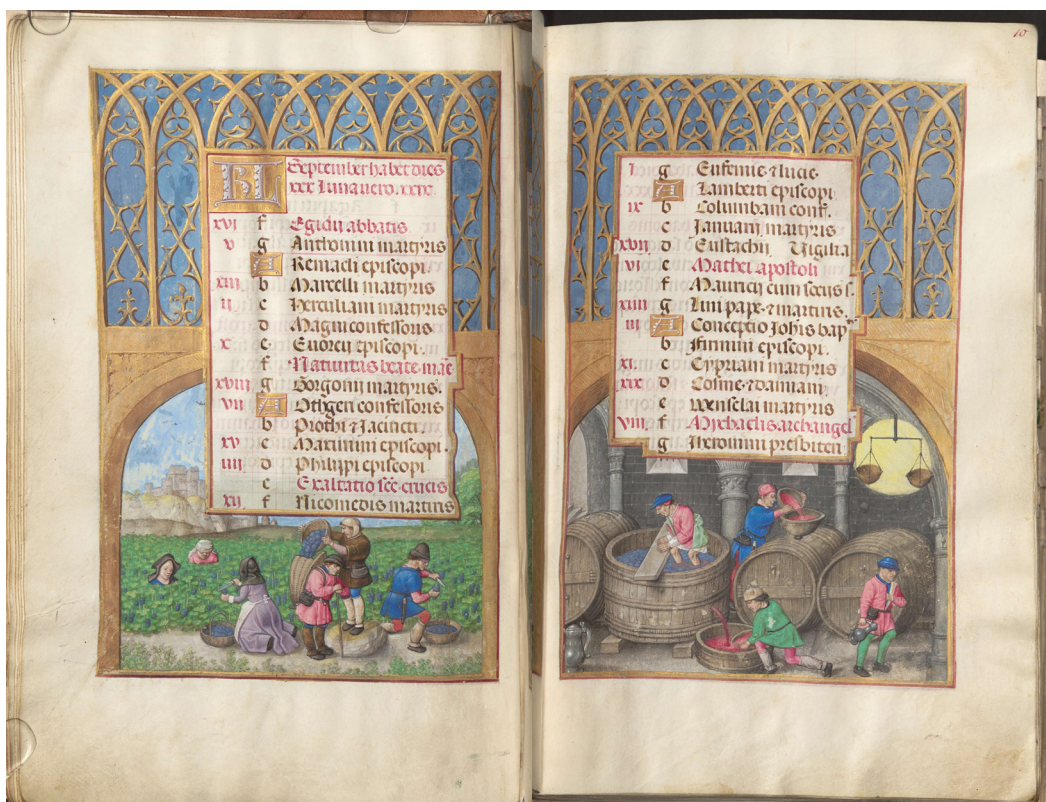 KL September habet dies
xxx Luna vero xxix
xvi f Egidii abbatis
v g Anthonini martyris
A Remacli episcopi
xiii b Marcelli martyris
ii c Herculiani martyris
d Magni confessoris
x e Evorcii episcopi.
f Nativitas beate mãe
xviii g Gorgonii martyris.
vii A Othgeri confessoris
b Prothi ⁊ Jacincti
xv c Maximini episcopi.
iiii d Philippi episcopi
e Exaltatio scẽ crucis
xii f Nicomedis martiris
10
i g Eufemie ⁊ lucie
A Lamberti episcopi
ix b Columbani conf.
c Januarii martyris
xvii d Eustachii Vigilia
vi e Mathei apostoli
f Mauricii cum sociis s.
xiiii g Lini pape ⁊ martiris.
iii A Conceptio Johis bap
b Firmini episcopi.
xi c Cypriani martyris
xix d Cosme ⁊ damiani
e Wenselai martyris
viii f Michaelis archangel
g Iheronimi presbiteri